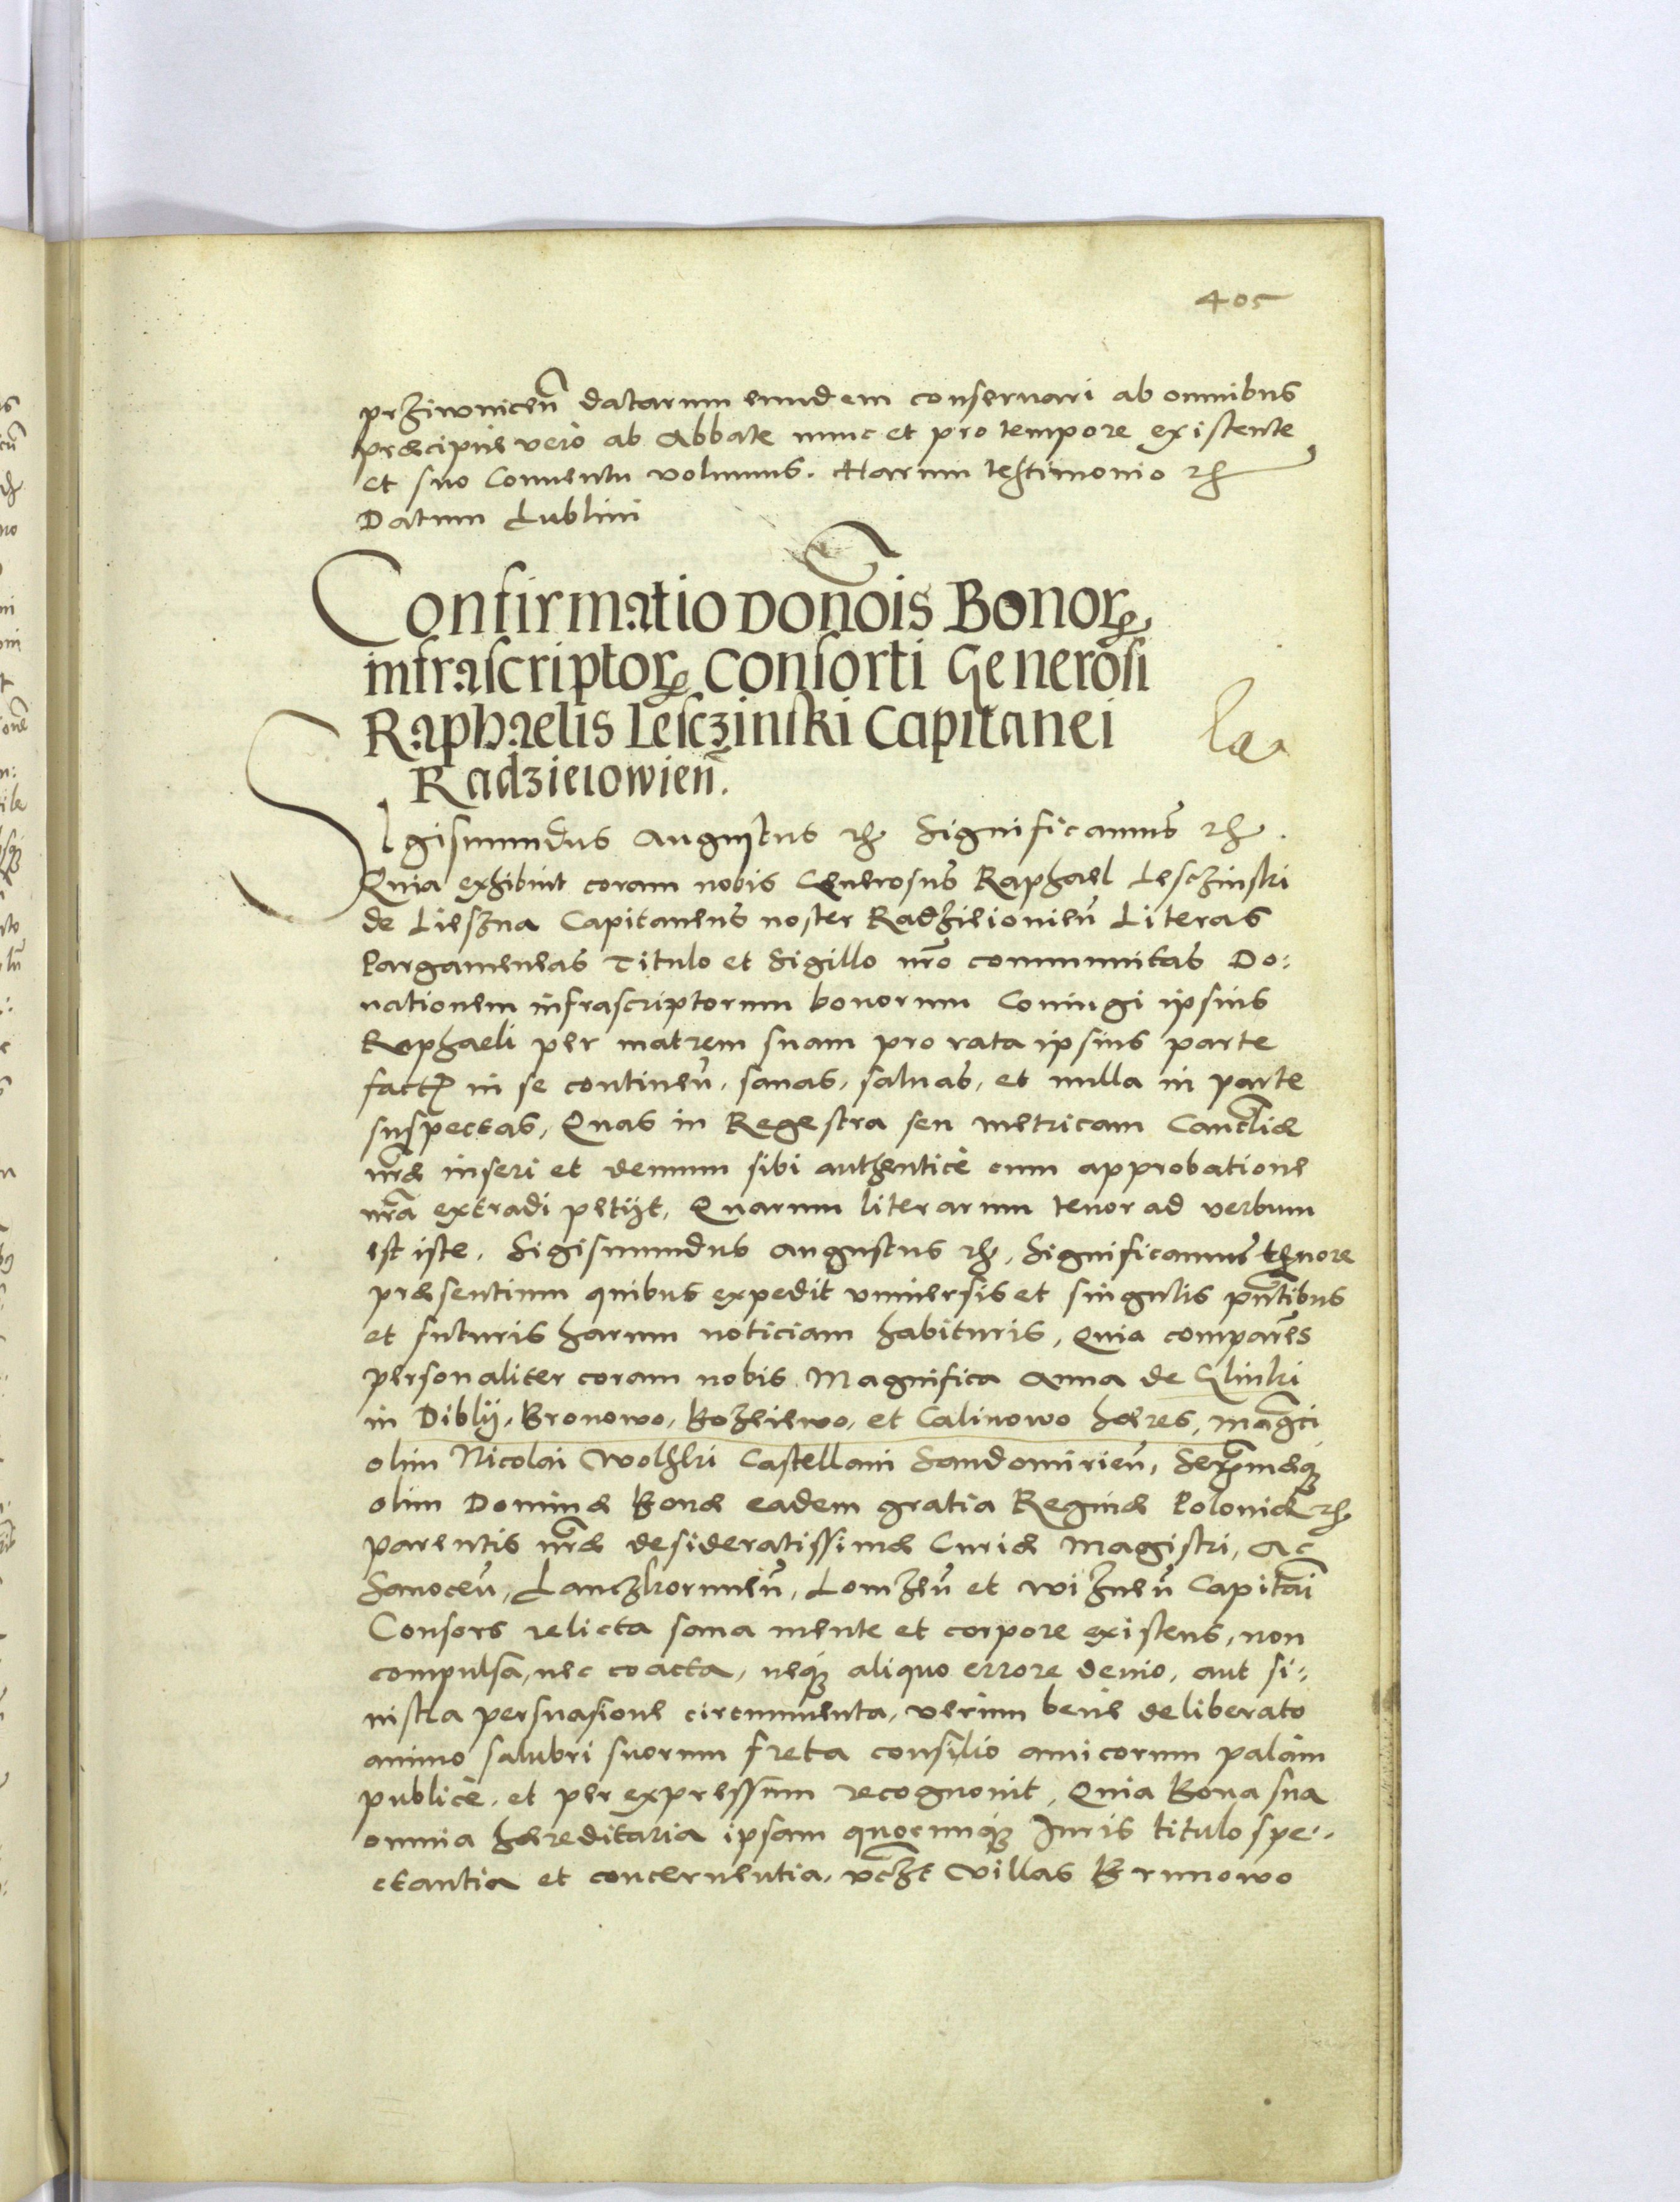 405
prziwnicen̄ datarum eundem conseruari ab omnibus
præcipue vero ab Abbate nunc et pro tempore existente
et suo Conuentu volumus. Harum testimonio etc
Datum Lublini
Confirmatio donōis Bonorꝝ
infrascriptorꝝ Consorti Generosi
Raphaelis Lesczinski Capitanei
Radzieiowien̄.
Sigismundus Augustus etc Significamus etc.
Quia exhibuit coram nobis Generosus Raphael Lesczinski
de Lieszna Capitaneus noster Radzieiouien̄ Literas
Pargameneas Titulo et Sigillo nr̄o communitas Do:
nationem infrascriptorum bonorum Coniugi ipsius
Raphaeli per matrem suam pro rata ipsius parte
factꝫ in se continen̄, sanas, saluas, et nulla in parte
suspectas, Quas in Regestra seu metricam Canc̄lliæ
nr̄æ inseri et demum sibi authenticè cum approbatione
nr̄a extradi petijt, Quarum literarum tenor ad verbum
est iste. Sigismundus augustus etc, Significamus tenore
præsentium quibus expedit vniuersis et singulis pn̄tibus
et futuris harum noticiam habituris, Quia comparēs
personaliter coram nobis Magnifica Anna de Glinki
in Diblij, Bronowo, Kozliewo, et Calinowo hæres, maḡci
olim Nicolai Wolski Castellani Sandomirien̄, Ser̄mæqꝫ
olim Dominæ Bonæ eadem gratia Reginæ Poloniæ etc
parentis nr̄æ desideratissimæ Curiæ Magistri, Ac
Sanocen̄, Lanczkorunen̄, Lomzen̄ et Wiznen̄ Capitāi
Consors relicta sana mente et corpore existens, non
compulsa, nec coacta, neqꝫ aliquo errore deuio, aut si:
nistra persuasione circumuenta, verum bene deliberato
animo salubri suorum freta consilio amicorum palàm
publicè, et per expressum recognouit, Quia Bona sua
omnia hæreditaria ipsam quocunqꝫ Iuris titulo spe:
ctantia et concernentia, vc̄zt Villas Brunowo